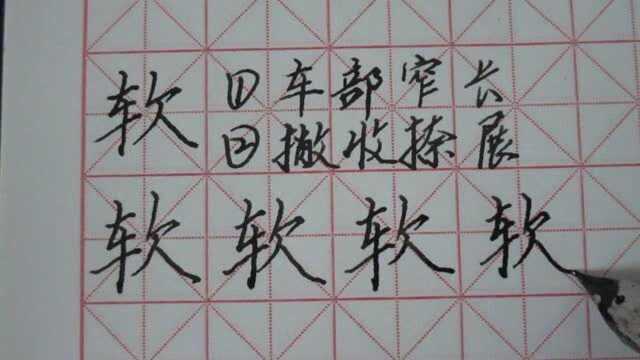 软 ①车部窄长
②撇收捺展
软 软 软 软